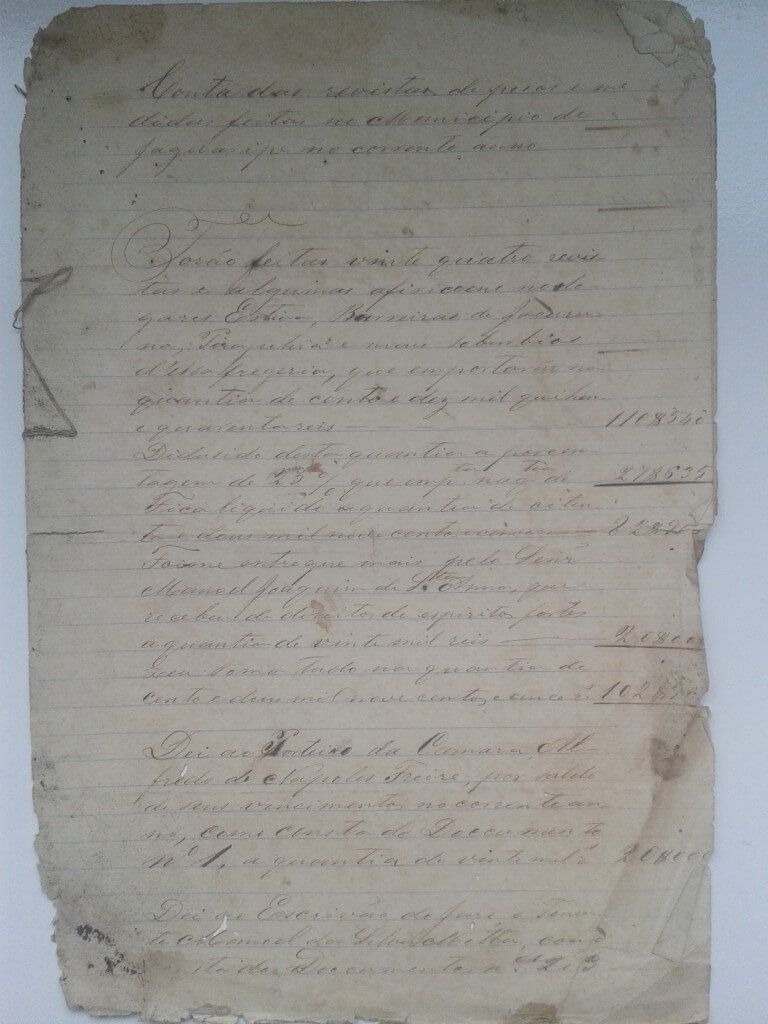 Conta das revistas de pesos e me
didas feitas no Municipio de
Jaguaripe no corrente anno
Forão feitas vinte quatro revis
tas e algumas afiricções nos lo
gares Estiva, Barreiras de Jacuru
na, Pirajuhia e mais suburbios
d'essa fregezia, que emportarão na
quantia de cento e dez mil quinhen
e quarenta reis — 110$540
Didusido desta quantia a porcen
tagem de 25% que emp.ta na q.tia de 27$635
Fica liquido a quantia de oiten
ta e dous mil nove cento e cinco rs 82$90
Foi-me entregue mais pelo Senr
Manoel Joaquim de S.ta Anna, que
recebeu de direitos de espiritos fortes
a quantia de vinte mil reis — 20$00
tudo na quantia de
cento e dous mil nove centos e cinco r.s 102$90
Dei ao Porteiro da Camara, Al-
fredo de Napoles Freire, por saldo
de seus vencimentos no corrente an-
no, como consta do Documento
nº 1, a quantia de vinte mil r.s 20$000
Dei ao Escrivão do Juri, o Tenen
te Manoel da Silva, com
consta do Documentos n.os 2 e 3